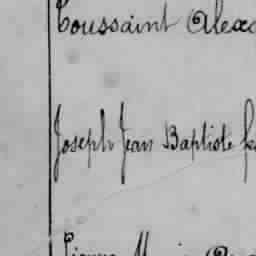 Toussaint Alex
Joseph Jean Baptiste
Pierre